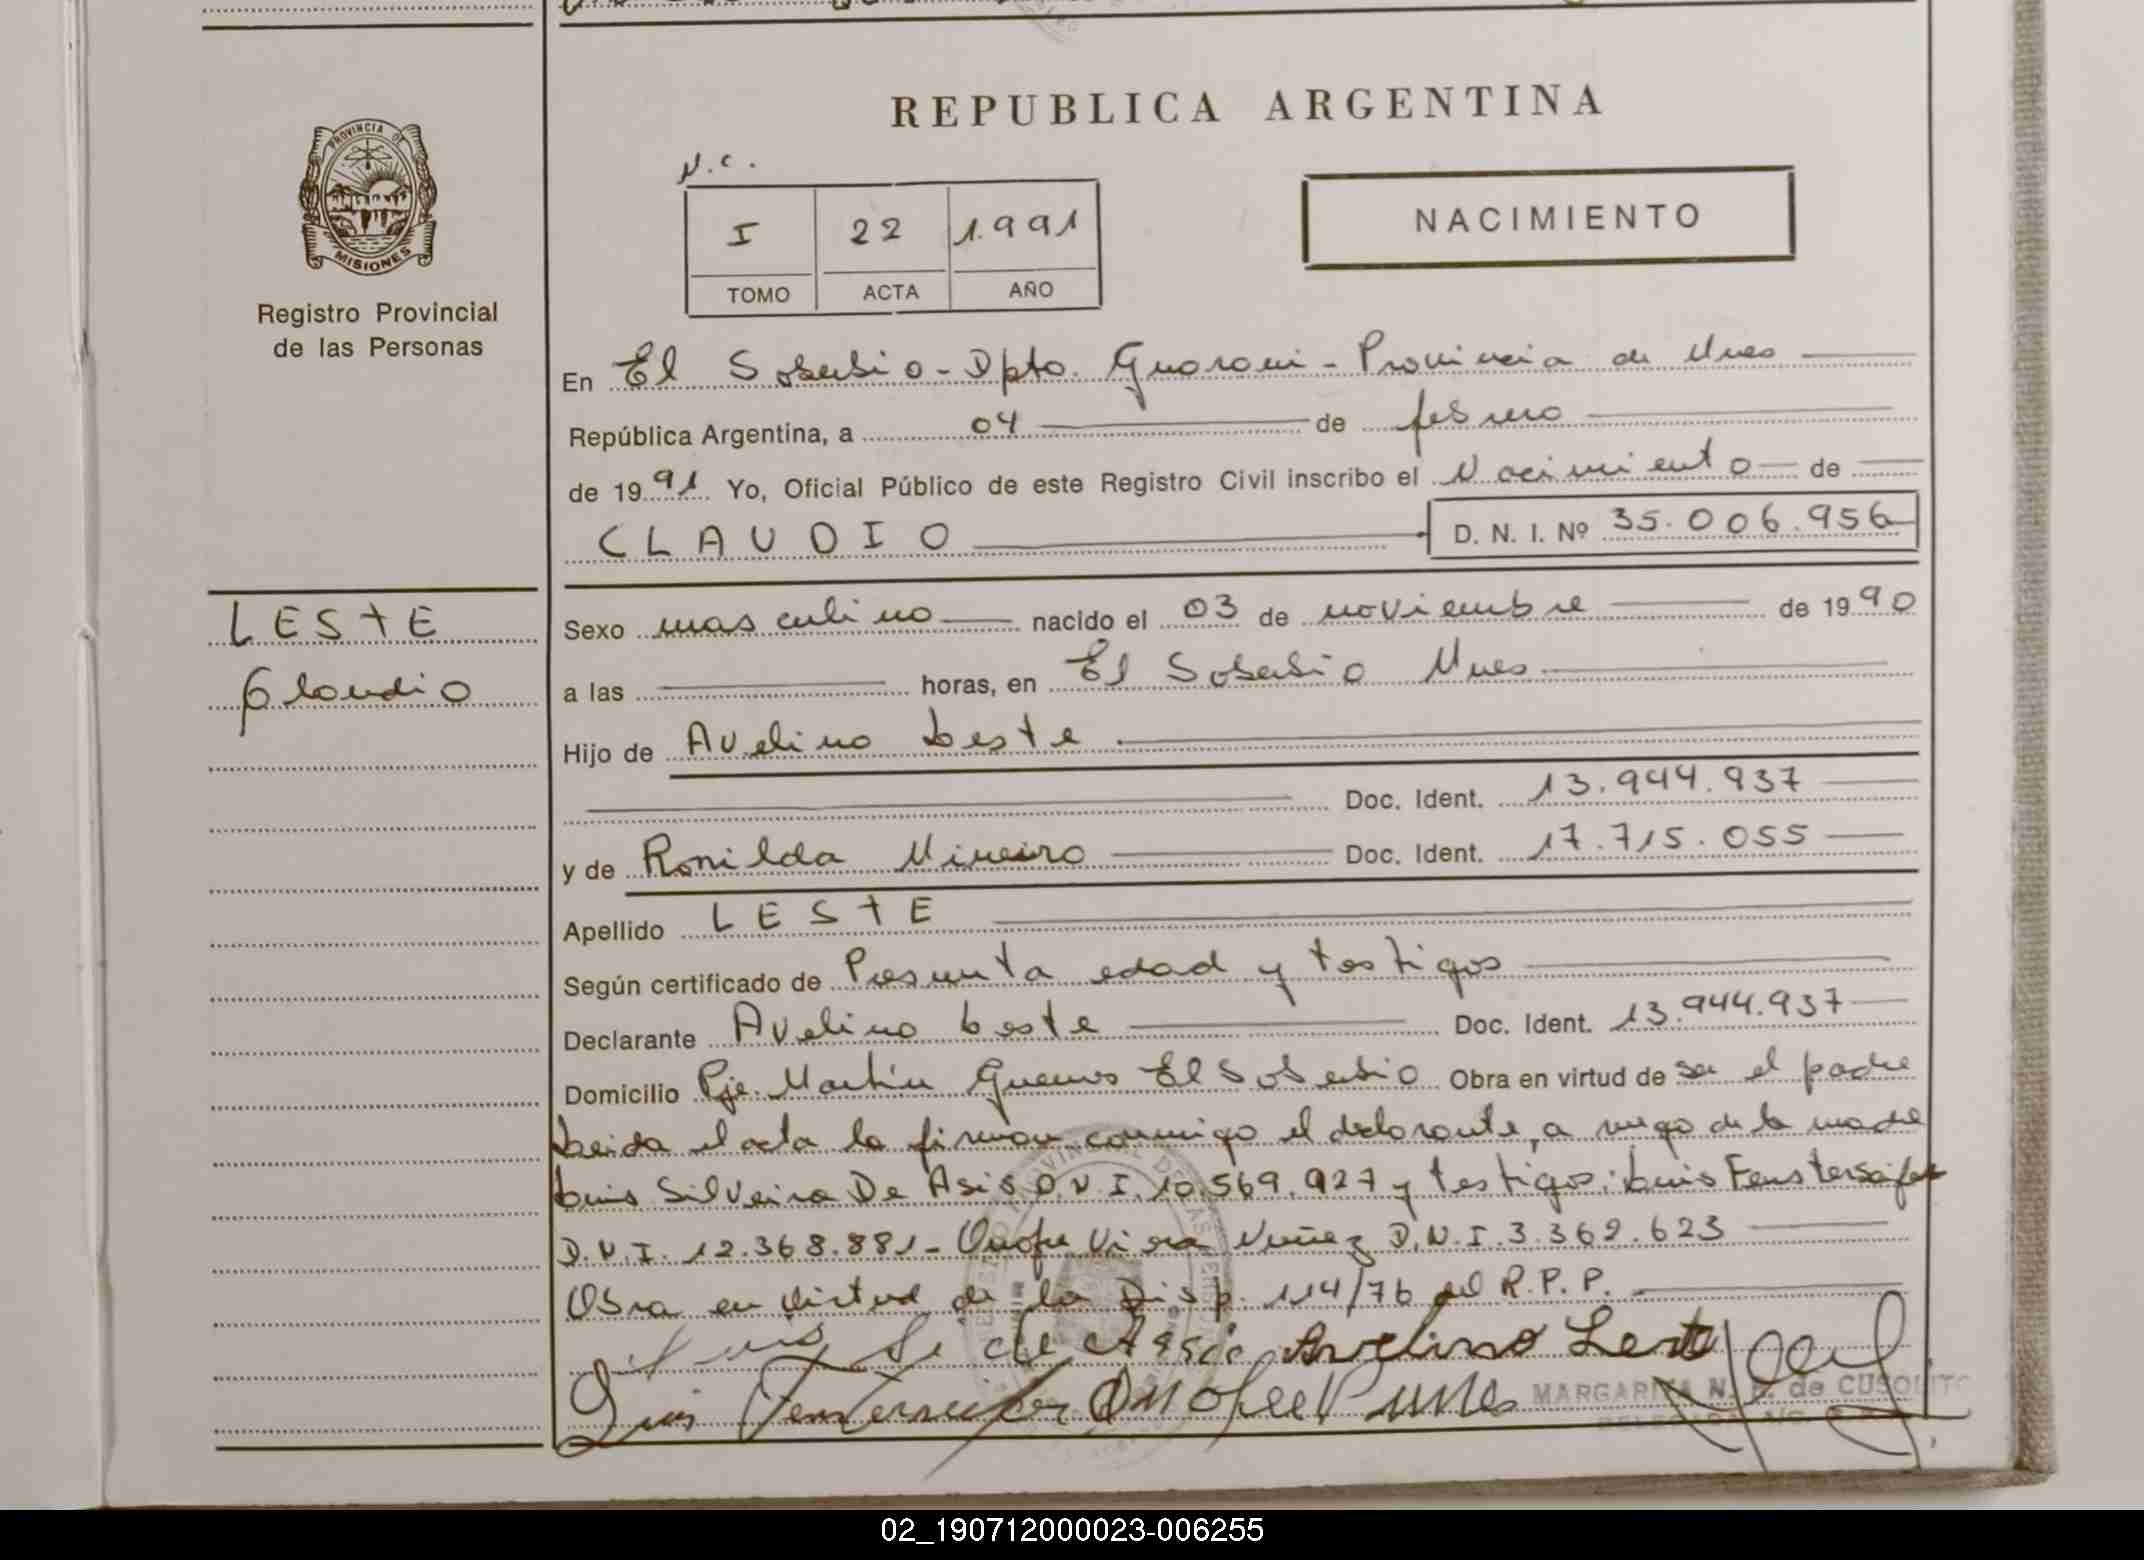 REPUBLICA ARGENTINA
PROVINCIA DE
MISIONES
Registro Provincial
de las Personas
N.C.
I 22 1.991
TOMO ACTA AÑO
NACIMIENTO
En El Soberbio - Dpto. Guarani - Provincia de Mnes
República Argentina, a 04 de febrero
de 1991 Yo, Oficial Público de este Registro Civil inscribo el Nacimiento de
CLAUDIO D. N. I. Nº 35.006.956
LESTE
Claudio
Sexo masculino nacido el 03 de noviembre de 1990
a las horas, en El Soberbio Mnes
Hijo de Avelino Leste
Doc. Ident. 13.944.937
y de Ronilda Mineiro Doc. Ident. 17.715.055
Apellido LESTE
Según certificado de Presunta edad y testigos
Declarante Avelino Leste Doc. Ident. 13.944.937
Domicilio Pje. Martín Guemes El Soberbio Obra en virtud de ser el padre
Leida el acta la firman conmigo el declarante, a ruego de la madre
Luis Silveira De Asis D.N.I. 10.569.927 y testigos: Luis Fensterseifer
D.N.I. 12.368.881 - Onofre Viera Nuñez D.N.I. 3.362.623
Obra en virtud de la Disp. 114/76 del R.P.P.
Luis Si de Assis Avelino Leste
Luis Fensterseifer Onofre V Nunes
MARGARITA N. de CUSQUITO
02_190712000023-006255